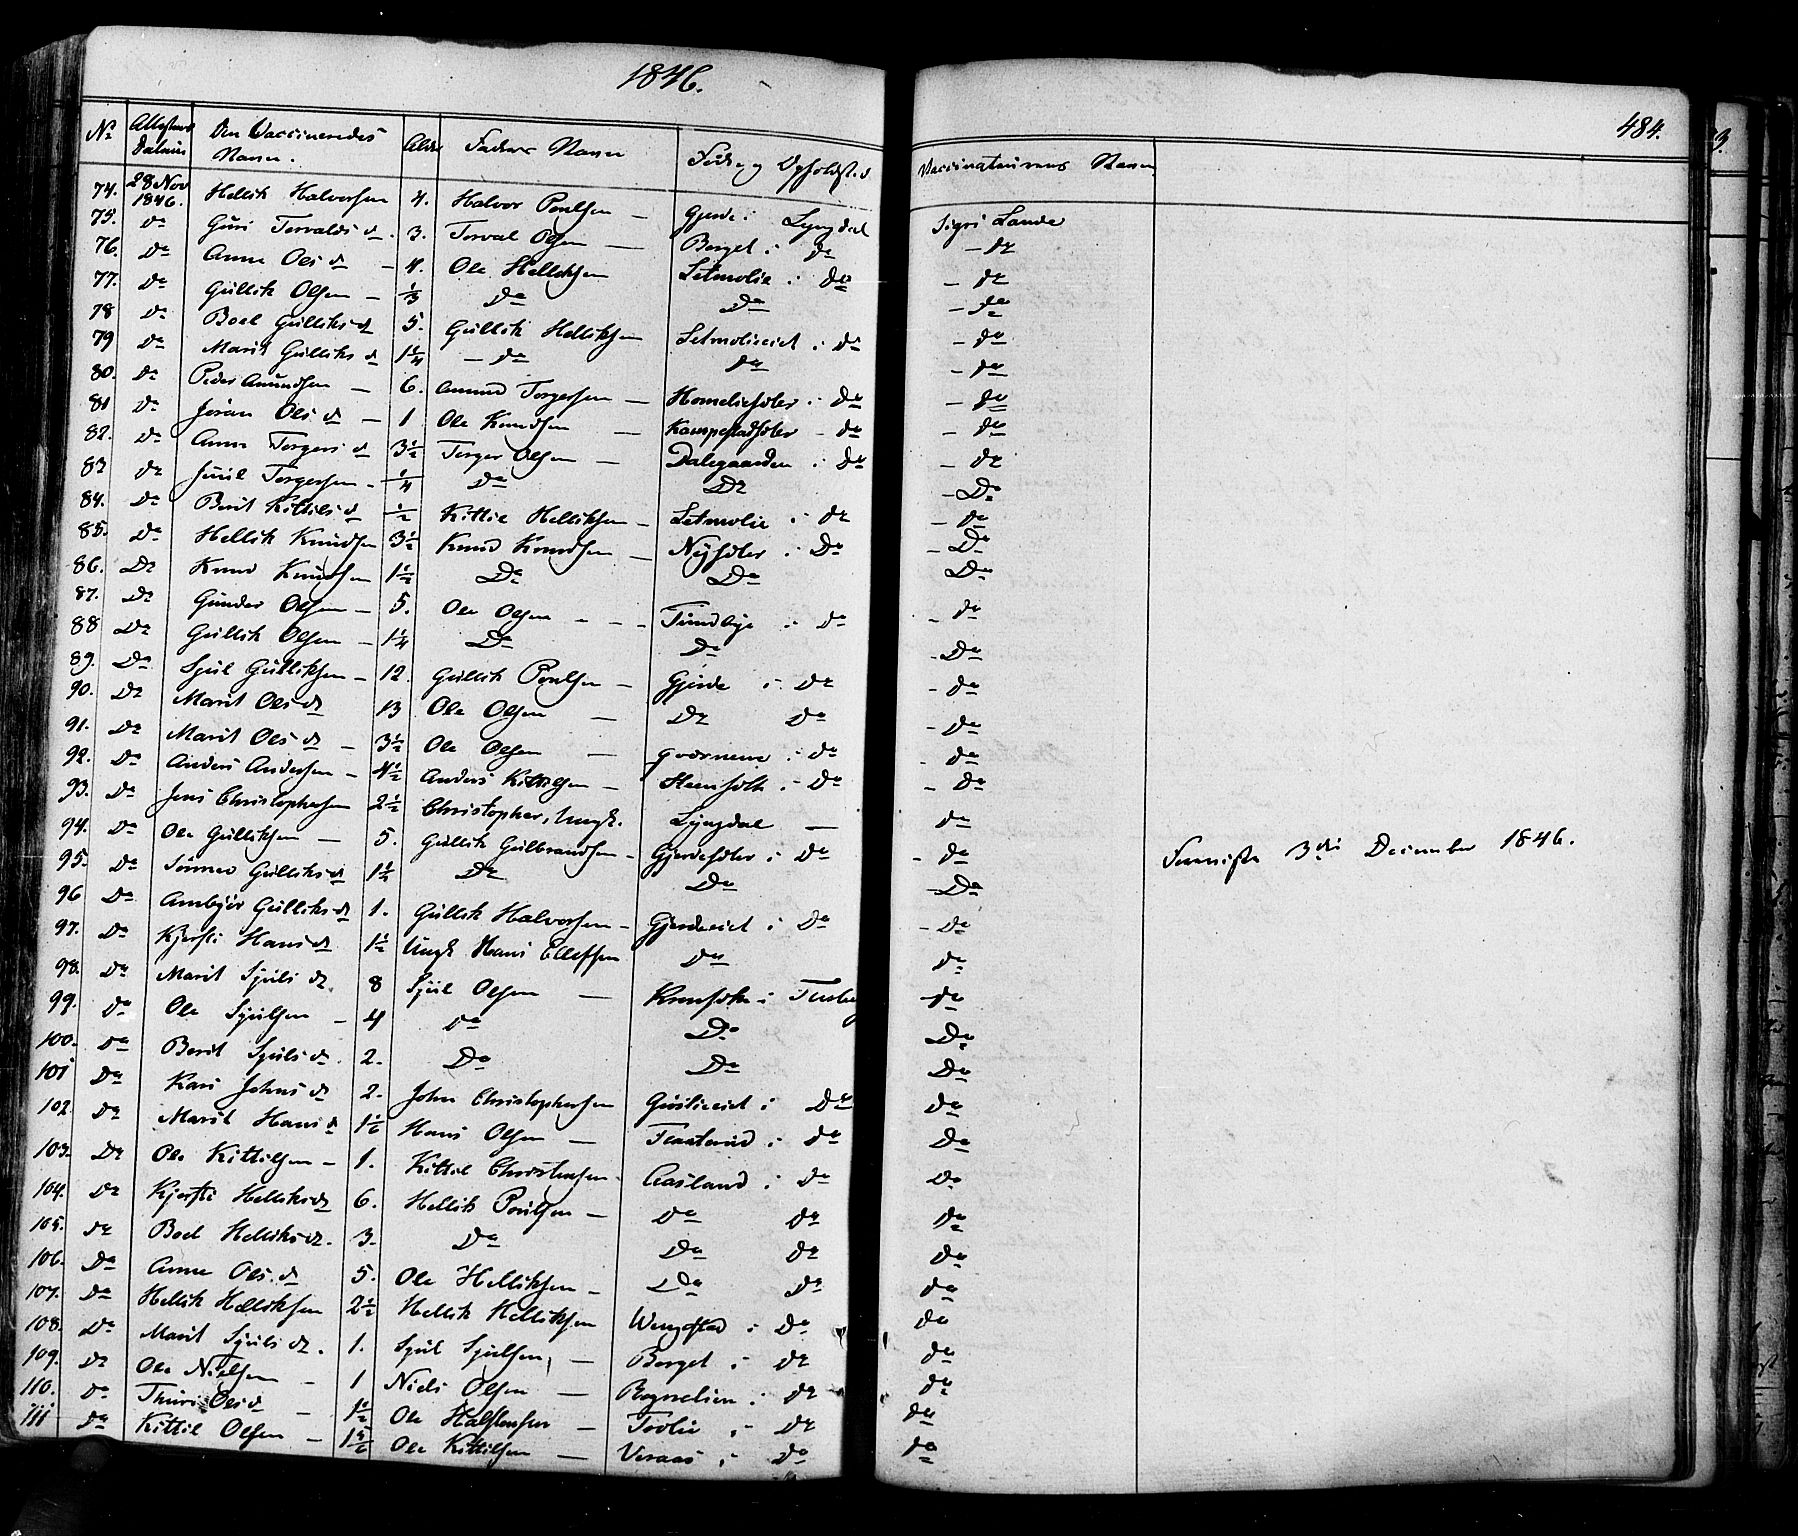 1846.
484.
No Attestens Datum Den Vaccineredes Navn. Alder Faders Navn Føde og Opholdsted Vaccinateurens Navn
74. 28 Nov 1846. Hellik Halvorsen 4. Halvor Poulsen — Gjerde i Lyngdal Sigri Lande
75. do Guri Torvalds d. 3. Torval Olsen — Berget i do — do
76. do Anne Ols d — 4. Ole Helliksen Setmolie i do — do
77. do Gullik Olsen — 1/3 do do — do
78 do Boel Gulliks d 5. Gullik Helliksen Setmolieeiet i do — do
79 do Marit Gulliks d 1 1/4 — do do — do
80. do Peder Amundsen — 6. Amund Torgersen — do — do
81 do Jøran Ols d — 1 Ole Knudsen — do — do
82. do Anne Torgers d 3 1/2 Torger Olsen — Dalegaarden i do — do
83 do Juul Torgersen — 1/4 do do — do
84. do Berit Kittils d 1/2 Kittil Helliksen — Setmolie i do — do
85. do Hellik Knudsen 3 1/2 Knud Knudsen — i do — do
86. do Knud Knudsen 1 1/2 do do — do
87. do Gunder Olsen — 5. Ole Olsen — Tundbye i do — do
88 do Gullik Olsen — 1 1/4 do do — do
89. do Sjul Gulliksen — 12. Gullik Poulsen — Gjerde i do — do
90. do Marit Ols d 13 Ole Olsen — do do — do
91. do Marit Ols d — 3 1/2 Ole Olsen — i do — do
92. do Anders Andersen — 4 1/2 Anders Kittilsen — i do — do
93. do Jens Christophersen 2 1/2 Christopher, Ungk. Lyngdal — do
94. do Ole Gulliksen — 5. Gullik Gulbrandsen — i do — do 3die December 1846.
95. do Gulliks d 1 1/2 do do — do
96 do Ambjør Gulliks d 1. Gullik Halvorsen — Gjerdeeiet i do — do
97. do Kjersti Hans d 1 1/2 Ungk Hans Ellefsen do do
98. do Marit Sjuls d. 8 Sjul Olsen — i do
99. do Ole Sjulsen — 4 do do do
100. do Berit Sjuls d. 2. do do do
101 do Kari Johns d 2. John Christophersen i do do
102. do Marit Hans d 1 1/6 Hans Olsen — i do do
103. do Ole Kittilsen — 1. Kittil Christensen — Aasland i do do
104. do Kjersti Helliks d 6. Hellik Poulsen — do do do
105. do Boel Helliks d. 3. do do do do
106. do Anne Ols d 5. Ole Helliksen — do do do
107. do Hellik Helliksen 2 1/2 Hellik Helliksen Wengestad i do do
108. do Marit Sjuls d. 1. Sjul Sjulsen — Berget i do do
109. do Ole Nielsen — 1 Niels Olsen — i do do
110. do Thuri Ols d — 1 1/2 Ole Halstensen — Tovlie i do do
111 do Kittil Olsen — 1 5/6 Ole Kittilsen — Veraas i do do